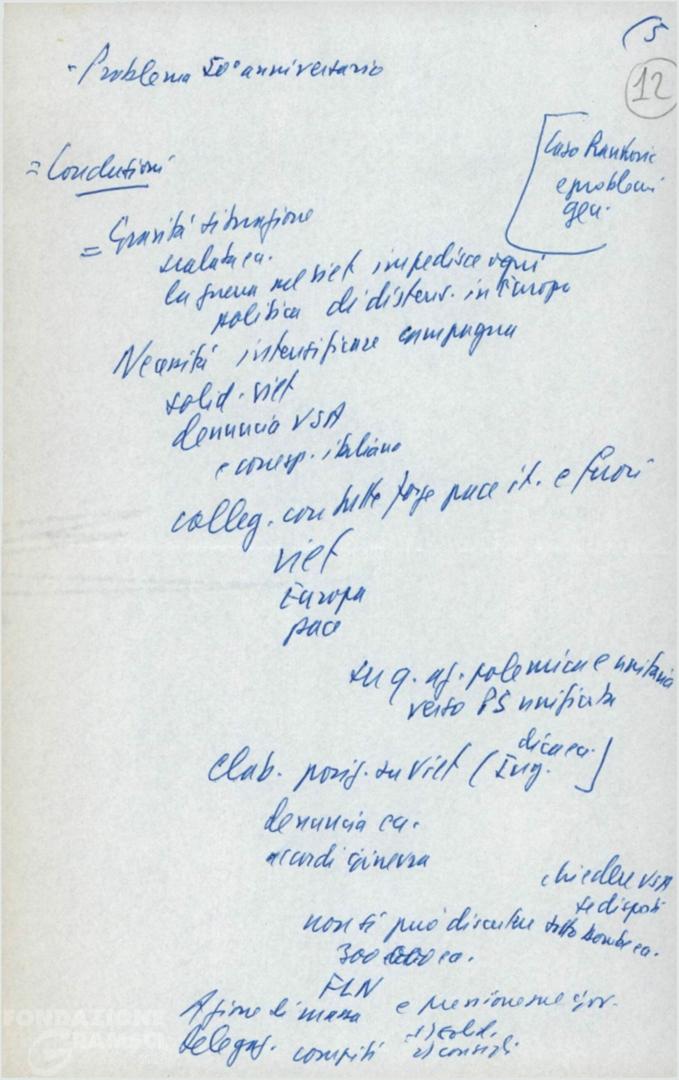 (5
12
- Problema 50° anniversario
[Caso Rankovic
e problemi
gen.
= Conclusioni
= Gravità situazione
scalata ea.
la guerra nel Viet impedisce ogni
politica di distens. in Europa
Necessità intensificare campagna
solid. Viet
denuncia USA
e corresp. italiano
colleg. con tutte forze pace it. e fuori
Viet
Europa
pace
su q. az. polemica e unitaria
verso PS unificato
Elab. posiz. su Viet ( Ing. ]
denuncia ea.
accordi ginevra
chiedere USA
se disposti
non si può discutere sotto bombe ea.
300 000 ea.
FLN
Azione di massa e pressione sul gov.
Delegaz. compiti 1) solid.
2) consigli.
FONDAZIONE
GRAMSCI